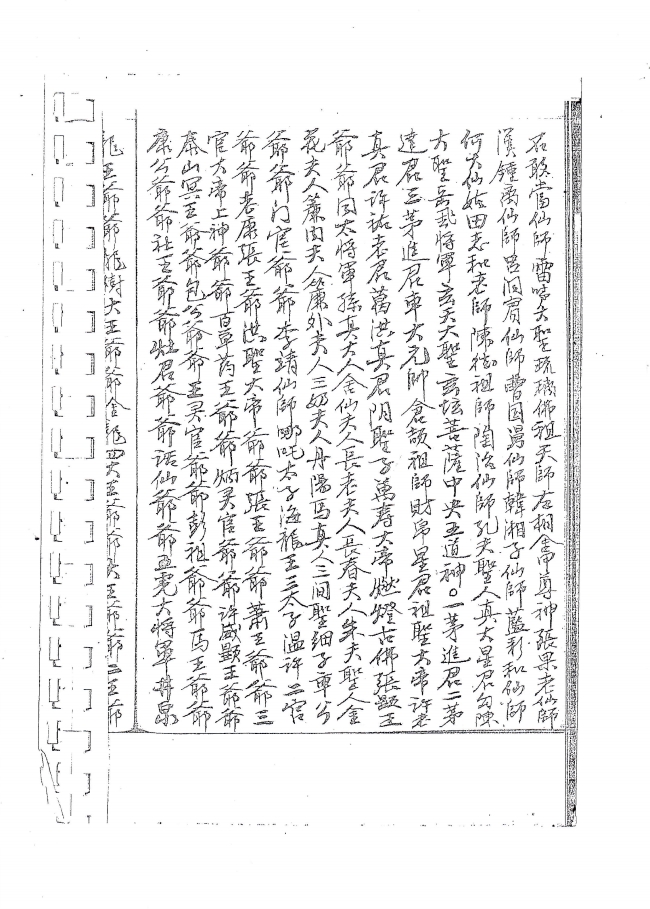 石敢當仙師雷啼大聖琉璃佛祖天師左相雷尊神張果老仙師
漢鍾离仙師呂洞宾仙師曹国舅仙師韓湘子仙師藍彩和仙師
何大仙姑田志和老師陳徒祖師陶冶仙師孔夫聖人真大星君勾陳
大聖岳武將軍玄天大聖玄坛菩薩中央五道神。一茅進君二茅
達君三茅進君車大元帥倉頡祖師財帛星君祖聖大帝許老
真君許祜老君葛洪真君阴聖子萬寿大帝燃燈古佛張顕王
爺爺囯太將軍孫真大人金仙夫人長老夫人長春夫人朱夫聖人金
花夫人簾内夫人簾外夫人三奶夫人丹陽馬真人三闾聖细子車公
爺爺门官爺爺李靖仙師哪吒太子海龍王三太子温許二官
爺爺老康張王爺洪聖大帝爺爺張王爺爺蕭王爺爺三
官大帝上神爺爺百草药王爺爺炳灵官爺爺许威顕王爺爺
泰山冥王爺爺包公爺爺王灵官爺爺彭祖爺爺馬王爺爺
康公爺爺社王爺爺灶君爺爺诺仙爺爺五虎大將軍井泉
龍王爺爺龍樹大王爺爺金龍四大王爺爺 王爺爺二王爺